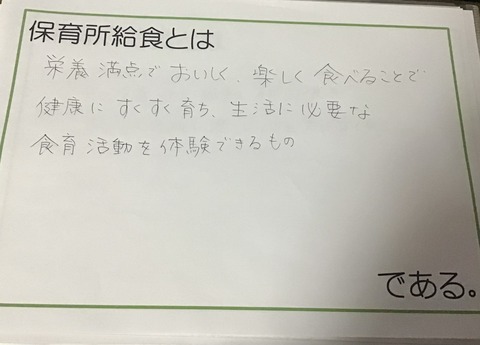 保育所給食とは
栄養満点でおいしく、楽しく食べることで
健康にすくすく育ち、生活に必要な
食育活動を体験できるもの
である。